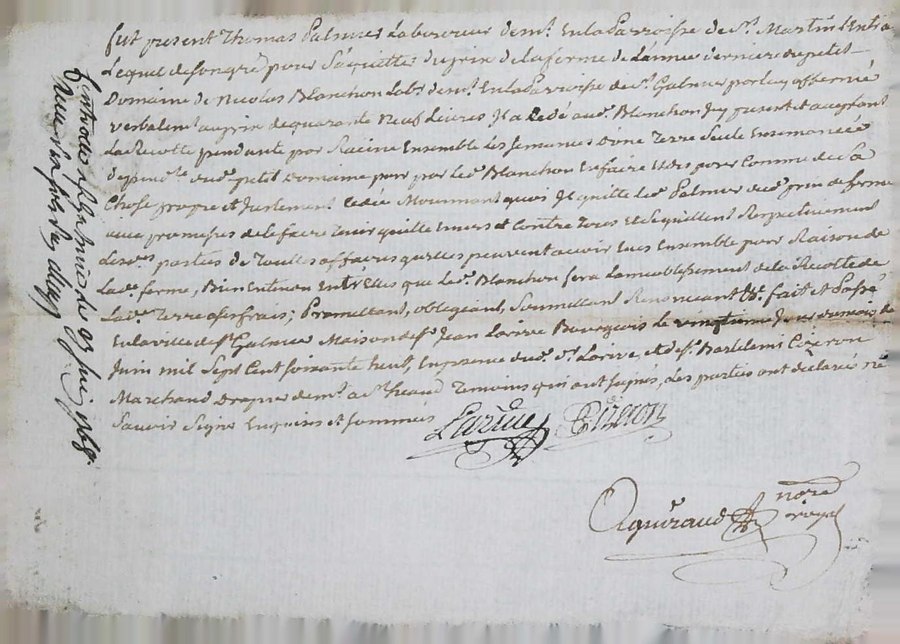 fut present Thomas Palmier Laboureur demt. En la Parroisse de St. Martin
Lequel de son gré pour S'aquitter du prix de la ferme de L'année derniere du petit
Domaine de Nicolas Blanchon Labr. demt. En la Parroisse de St. Galmier par luy affermé
verbalemt. au prix de quarante Neuf Livres Il a Cedé aud. Blanchon Icy present et acceptant
La Recolte pendante par Racine Ensemble les Semances d'une Terre Seule Ensemancée
dependte. dud. petit Domaine pour par led. Blanchon En faire user comme de Sa
Chose propre et Justement cedée Moyennant quoy Il quitte led. Palmier dud. prix de ferme
avec promesses de le faire tenir quitte envers et Contre tous et Se quittent Respectivement
lesdes. parties de Toutes affaires qu'elles peuvent avoir Eues Ensemble pour Raison de
Lade. ferme, Bien Entendu Entr'Elles que led. Blanchon fera de la Recolte de
Lade. Terre a ses frais; Promettant, obligeant, Soumettant Renonceant &c. fait et Passé
En la ville de St. Galmier Maison de Sr. Jean Larive Bourgeois le vingtieme Jour du mois de
Juin mil Sept Cent Soixante huit, En presence dud. Sr. Larive, et de Sr. Barthelemi Cizeron
Marchand demt. a St. heand Temoins qui ont Signés, Les parties ont declarés ne
Savoir Signer Enquises et Sommées
Larive Cizeron
Aguiraud
nore.
royal
Controllé a St. Galmier le 23 juin 1768
Reçu